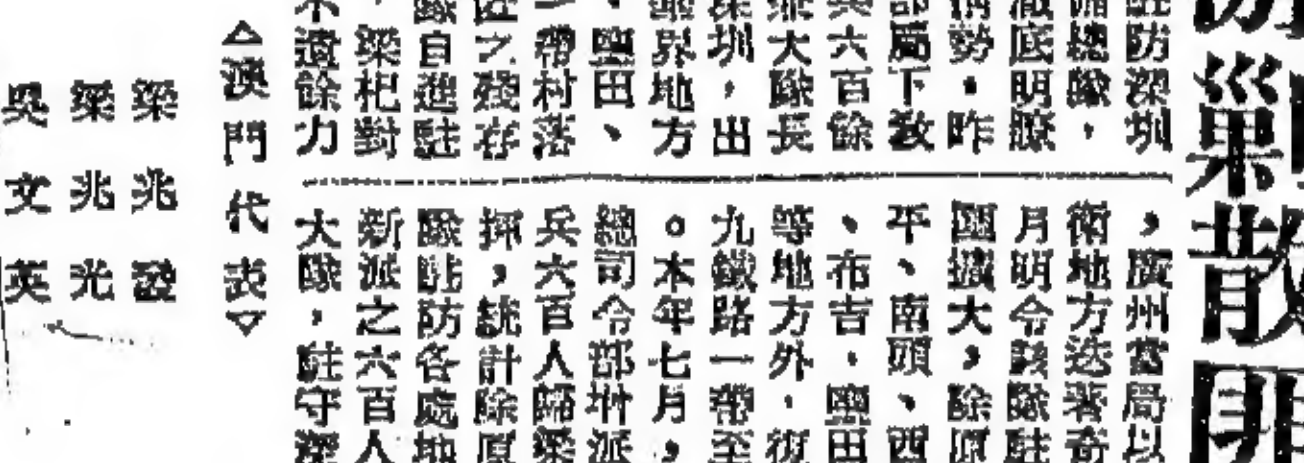 剿散匪
駐防深圳
總隊，
澈底明瞭
情勢。昨
部局下敎
六百餘
大隊長
深圳，出
界地方
、鹽田、
一帶村落
之殘存
隊自進駐
，梁杞對
不遺餘力
，廣州當局以
衛地方迭著奇
月明令該隊駐
圍擴大，除原
平、南頭、西
、布吉，鹽田
等地方外，復
九鐵路一帶至
。本年七月，
總司令部增派
兵六百人歸梁
揮，統計除原
隊駐防各處地
新派之六百人
大隊，駐守深
△澳門代表▽
梁兆發
梁兆光
吳文英